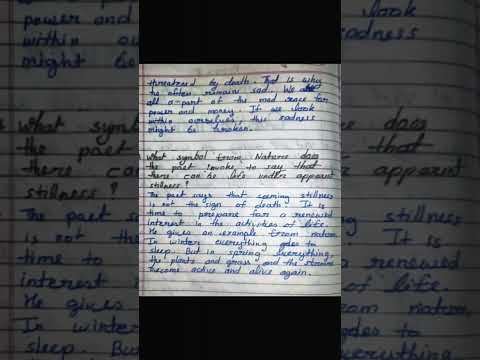 threatened by death. That is why
he often remain sad. We are
all a part of the mad race for
power and money. If we look
within ourselves, this sadness
might be broken.
What symbol from Nature does
the poet invoke to say that
there can be life under apparent
stillness?
The poet says that seeming stillness
is not the sign of death. It is
time to prepare for a renewed
interest in the activities of life.
He gives an example from nature.
In winter everything goes to
sleep. But in spring everything,
the plants and grass and the streams
become active and alive again.